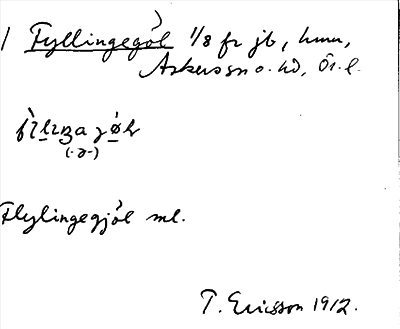 / Fyllingegöl 1/8 fr jb, hmn,
Askerssn o. hd, Ör. l.
(-ə-)
Flylingegjöl ml.
T. Ericsson 1912.